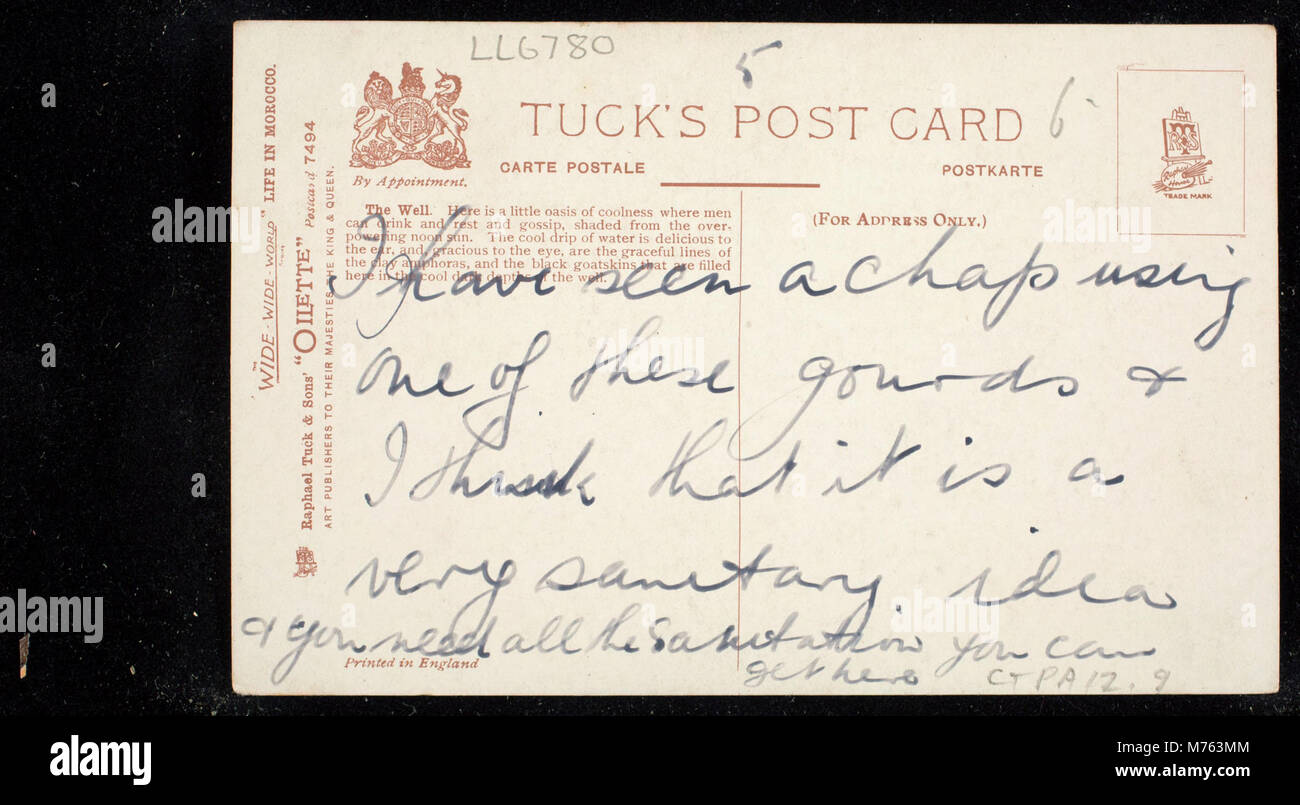 LL6780
5
TUCK'S POST CARD
6
CARTE POSTALE
POSTKARTE
By Appointment.
TRADE MARK
(FOR ADDRESS ONLY.)
THE "WIDE-WIDE-WORLD" LIFE IN MOROCCO.
Raphael Tuck & Sons' "OILETTE" Postcard 7494
ART PUBLISHERS TO THEIR MAJESTIES THE KING & QUEEN.
The Well. Here is a little oasis of coolness where men
can drink and rest and gossip, shaded from the over-
powering noon sun. The cool drip of water is delicious to
the ear, and gracious to the eye, are the graceful lines of
the clay amphoras, and the black goatskins that are filled
here in the cool dark depths of the well.
I have seen a chap using
one of these gourds &
I think that it is a
very sanitary idea
& you need all the sanitation you can
get here
Printed in England
CTPA12.9
alamy
alamy
Image ID: M763MM
www.alamy.com